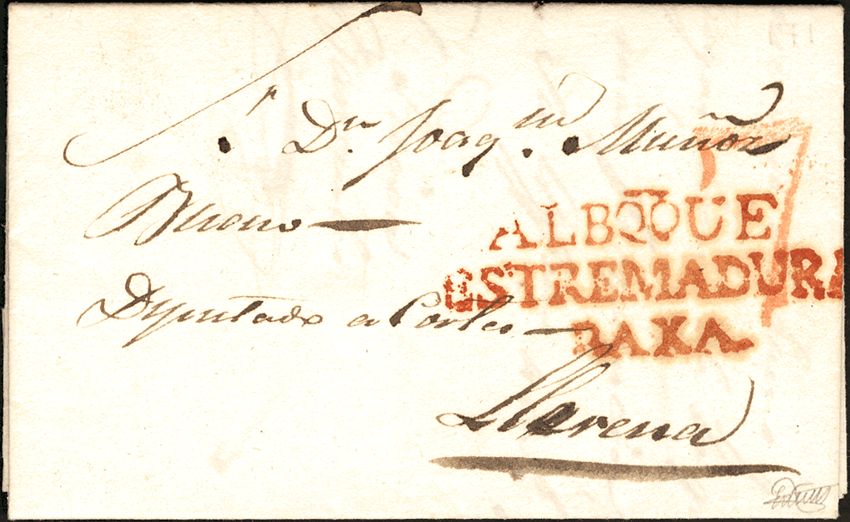 Sr. Dn. Joaqm. Muñoz
Bueno
Diputado a Cortes
Llerena
7
ALBQQUE
ESTREMADURA
BAXA